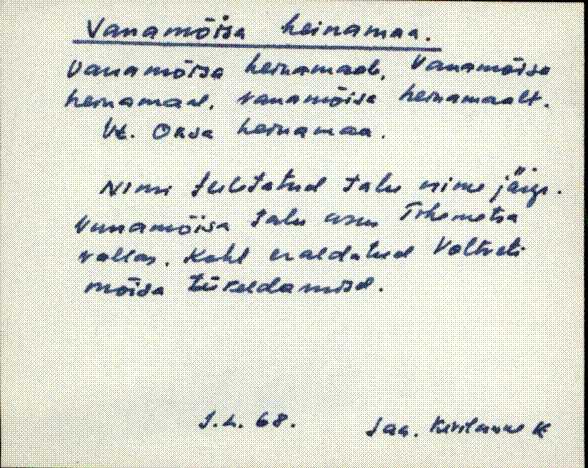 Vanamõisa heinamaa.
Vanamõisa heinamaale, Vanamõisa
heinamaal, Vanamõisa heinamaalt.
Vt. Oksa heinamaa.
Nimi tuletatud talu nime järgi.
Vanamõisa talu asus Tihemetsa
vallas. Koht eraldatud Voltveti
mõisa tükeldamisel.
68.